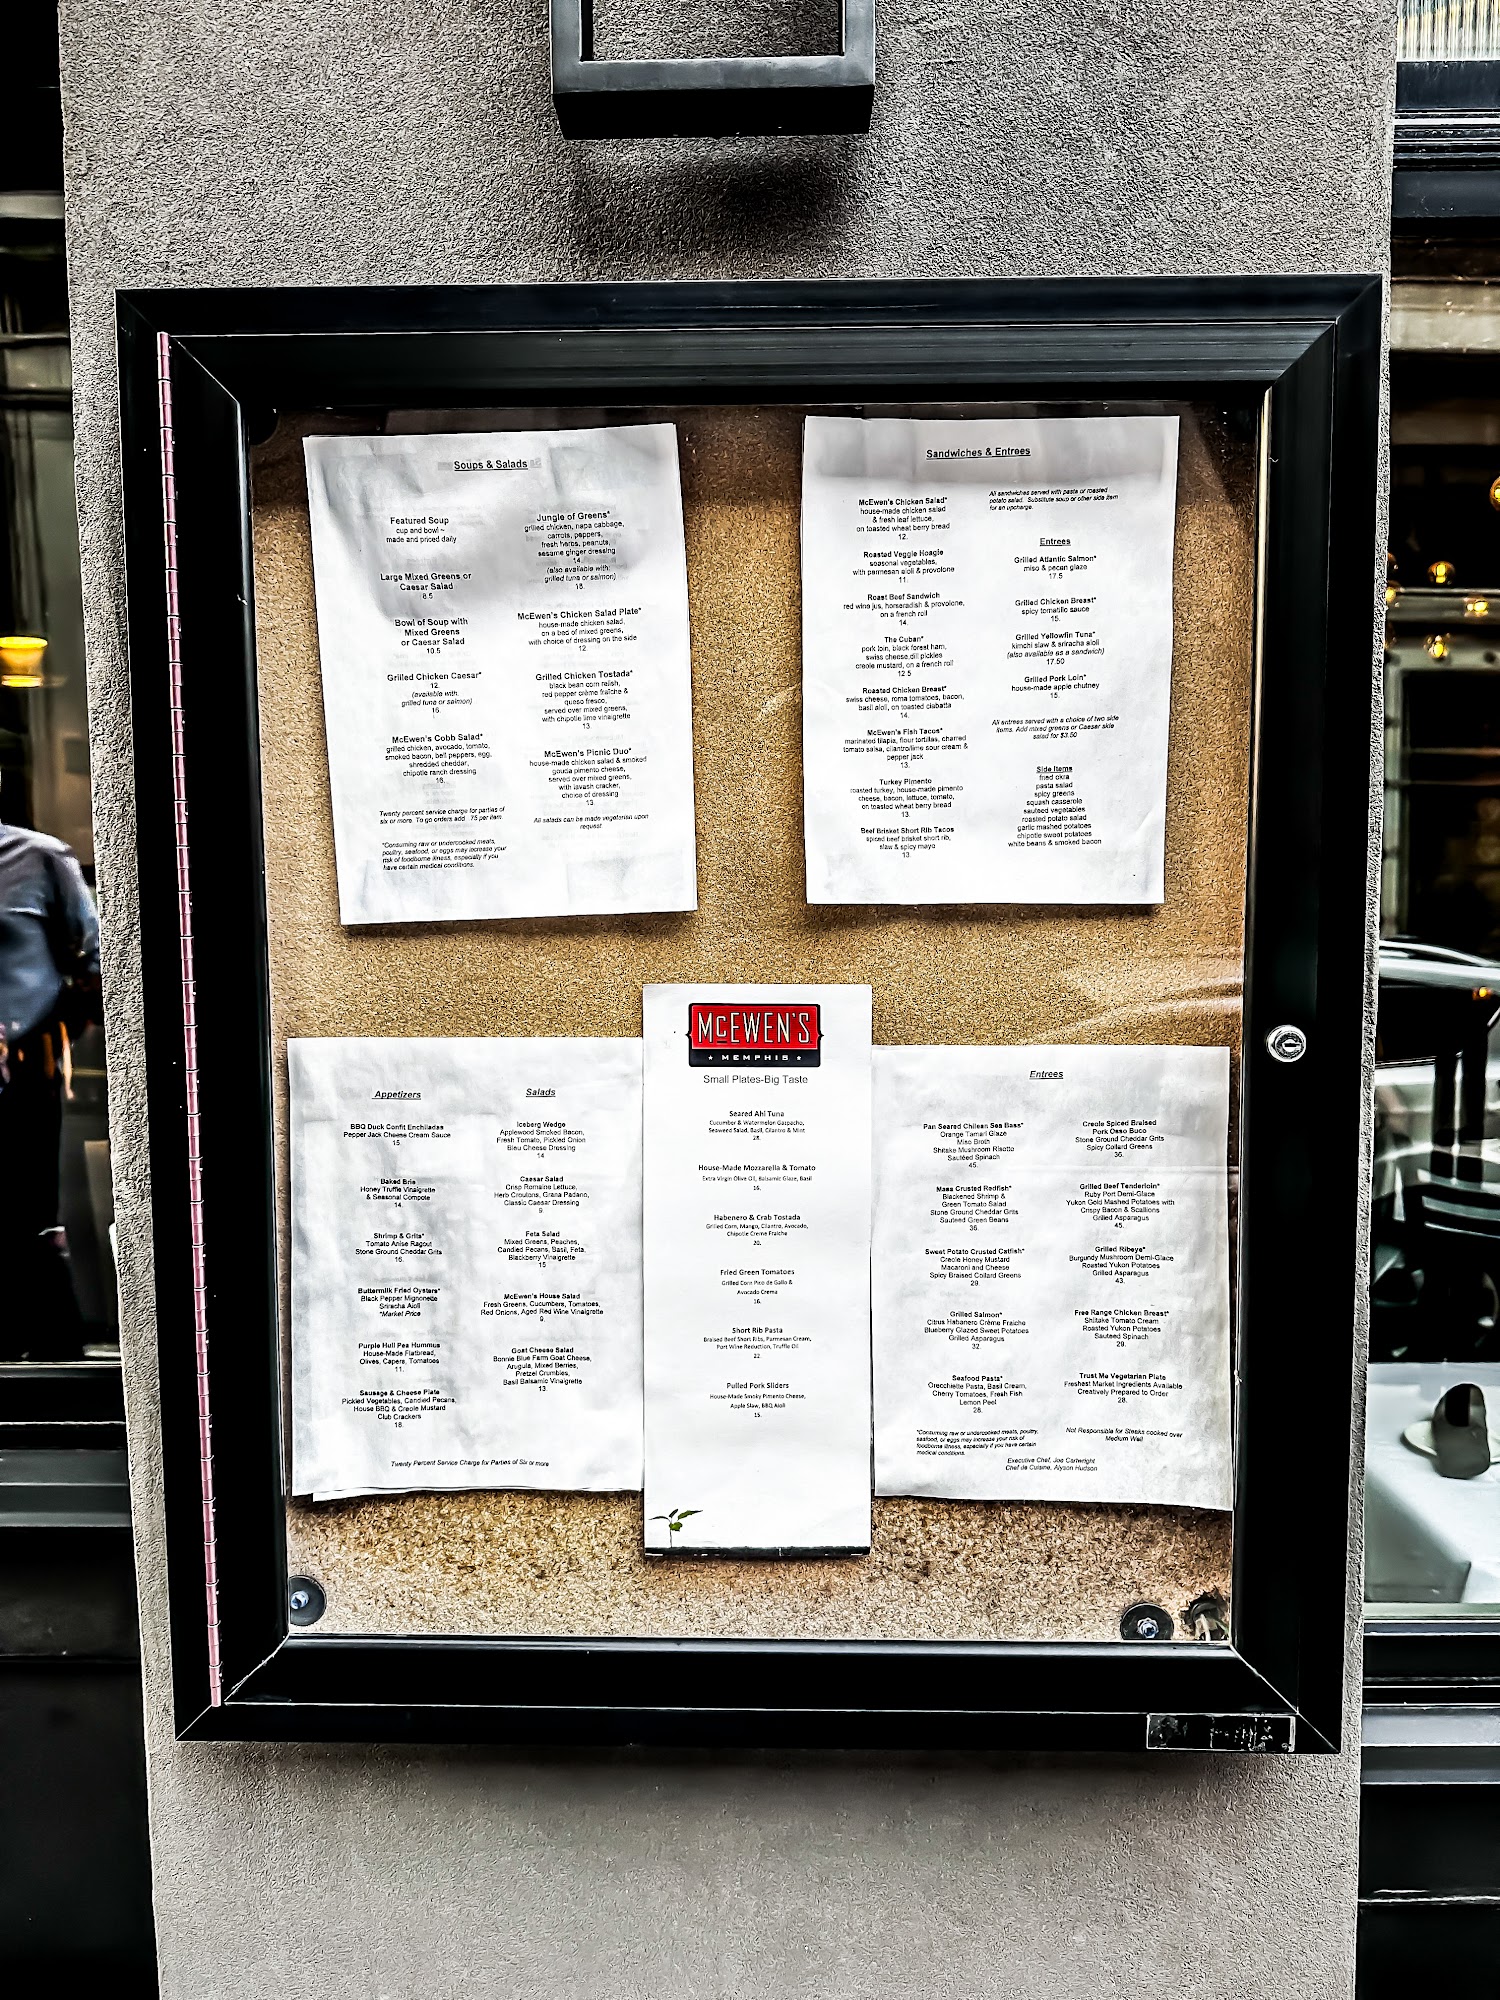 Soups & Salads
Featured Soup
cup and bowl ~
made and priced daily
Large Mixed Greens or
Caesar Salad
8.5
Bowl of Soup with
Mixed Greens
or Caesar Salad
10.5
Grilled Chicken Caesar*
12.
(available with:
grilled tuna or salmon)
16.
McEwen's Cobb Salad*
grilled chicken, avocado, tomato,
smoked bacon, bell peppers, egg,
shredded cheddar,
chipotle ranch dressing
16.
Twenty percent service charge for parties of
six or more. To go orders add .75 per item.
*Consuming raw or undercooked meats,
poultry, seafood, or eggs may increase your
risk of foodborne illness, especially if you
have certain medical conditions.
Jungle of Greens*
grilled chicken, napa cabbage,
carrots, peppers,
fresh herbs, peanuts,
sesame ginger dressing
14.
(also available with:
grilled tuna or salmon)
18.
McEwen's Chicken Salad Plate*
house-made chicken salad,
on a bed of mixed greens,
with choice of dressing on the side
12.
Grilled Chicken Tostada*
black bean corn relish,
red pepper crème fraîche &
queso fresco,
served over mixed greens,
with chipotle lime vinaigrette
13.
McEwen's Picnic Duo*
house-made chicken salad & smoked
gouda pimento cheese,
served over mixed greens,
with lavash cracker,
choice of dressing
13.
All salads can be made vegetarian upon
request.
Sandwiches & Entrees
McEwen's Chicken Salad*
house-made chicken salad
& fresh leaf lettuce,
on toasted wheat berry bread
12.
Roasted Veggie Hoagie
seasonal vegetables,
with parmesan aioli & provolone
11.
Roast Beef Sandwich
red wine jus, horseradish & provolone,
on a french roll
14.
The Cuban*
pork loin, black forest ham,
swiss cheese, dill pickles
creole mustard, on a french roll
12.5
Roasted Chicken Breast*
swiss cheese, roma tomatoes, bacon,
basil aioli, on toasted ciabatta
14.
McEwen's Fish Tacos*
marinated tilapia, flour tortillas, charred
tomato salsa, cilantro/lime sour cream &
pepper jack
13.
Turkey Pimento
roasted turkey, house-made pimento
cheese, bacon, lettuce, tomato,
on toasted wheat berry bread
13.
Beef Brisket Short Rib Tacos
spiced beef brisket short rib,
slaw & spicy mayo
13.
All sandwiches served with pasta or roasted
potato salad. Substitute soup or other side item
for an upcharge.
Entrees
Grilled Atlantic Salmon*
miso & pecan glaze
17.5
Grilled Chicken Breast*
spicy tomatillo sauce
15.
Grilled Yellowfin Tuna*
kimchi slaw & sriracha aioli
(also available as a sandwich)
17.50
Grilled Pork Loin*
house-made apple chutney
15.
All entrees served with a choice of two side
items. Add mixed greens or Caesar side
salad for $3.50
Side Items
fried okra
pasta salad
spicy greens
squash casserole
sauteed vegetables
roasted potato salad
garlic mashed potatoes
chipotle sweet potatoes
white beans & smoked bacon
Appetizers
BBQ Duck Confit Enchiladas
Pepper Jack Cheese Cream Sauce
15.
Baked Brie
Honey Truffle Vinaigrette
& Seasonal Compote
14.
Shrimp & Grits*
Tomato Anise Ragout
Stone Ground Cheddar Grits
16.
Buttermilk Fried Oysters*
Black Pepper Mignonette
Sriracha Aioli
*Market Price
Purple Hull Pea Hummus
House-Made Flatbread,
Olives, Capers, Tomatoes
11.
Sausage & Cheese Plate
Pickled Vegetables, Candied Pecans,
House BBQ & Creole Mustard
Club Crackers
18.
Salads
Iceberg Wedge
Applewood Smoked Bacon,
Fresh Tomato, Pickled Onion
Bleu Cheese Dressing
14
Caesar Salad
Crisp Romaine Lettuce,
Herb Croutons, Grana Padano,
Classic Caesar Dressing
9.
Feta Salad
Mixed Greens, Peaches,
Candied Pecans, Basil, Feta,
Blackberry Vinaigrette
15
McEwen's House Salad
Fresh Greens, Cucumbers, Tomatoes,
Red Onions, Aged Red Wine Vinaigrette
9.
Goat Cheese Salad
Bonnie Blue Farm Goat Cheese,
Arugula, Mixed Berries,
Pretzel Crumbles,
Basil Balsamic Vinaigrette
13.
Twenty Percent Service Charge for Parties of Six or more
McEWEN'S
MEMPHIS
Small Plates-Big Taste
Seared Ahi Tuna
Cucumber & Watermelon Gazpacho,
Seaweed Salad, Basil, Cilantro & Mint
28.
House-Made Mozzarella & Tomato
Extra Virgin Olive Oil, Balsamic Glaze, Basil
16.
Habenero & Crab Tostada
Grilled Corn, Mango, Cilantro, Avocado,
Chipotle Creme Fraiche
20.
Fried Green Tomatoes
Grilled Corn Pico de Gallo &
Avocado Crema
16.
Short Rib Pasta
Braised Beef Short Ribs, Parmesan Cream,
Port Wine Reduction, Truffle Oil
22.
Pulled Pork Sliders
House-Made Smoky Pimento Cheese,
Apple Slaw, BBQ Aioli
15.
Entrees
Pan Seared Chilean Sea Bass*
Orange Tamari Glaze
Miso Broth
Shitake Mushroom Risotto
Sautéed Spinach
45.
Masa Crusted Redfish*
Blackened Shrimp &
Green Tomato Salad
Stone Ground Cheddar Grits
Sauteed Green Beans
36.
Sweet Potato Crusted Catfish*
Creole Honey Mustard
Macaroni and Cheese
Spicy Braised Collard Greens
29.
Grilled Salmon*
Citrus Habanero Crème Fraiche
Blueberry Glazed Sweet Potatoes
Grilled Asparagus
32.
Seafood Pasta*
Orecchiette Pasta, Basil Cream,
Cherry Tomatoes, Fresh Fish
Lemon Peel
28.
*Consuming raw or undercooked meats, poultry,
seafood, or eggs may increase your risk of
foodborne illness, especially if you have certain
medical conditions.
Creole Spiced Braised
Pork Osso Buco
Stone Ground Cheddar Grits
Spicy Collard Greens
36.
Grilled Beef Tenderloin*
Ruby Port Demi-Glace
Yukon Gold Mashed Potatoes with
Crispy Bacon & Scallions
Grilled Asparagus
45.
Grilled Ribeye*
Burgundy Mushroom Demi-Glace
Roasted Yukon Potatoes
Grilled Asparagus
43.
Free Range Chicken Breast*
Shiitake Tomato Cream
Roasted Yukon Potatoes
Sauteed Spinach
29.
Trust Me Vegetarian Plate
Freshest Market Ingredients Available
Creatively Prepared to Order
28.
Not Responsible for Steaks cooked over
Medium Well
Executive Chef, Joe Cartwright
Chef de Cuisine, Alyson Hudson